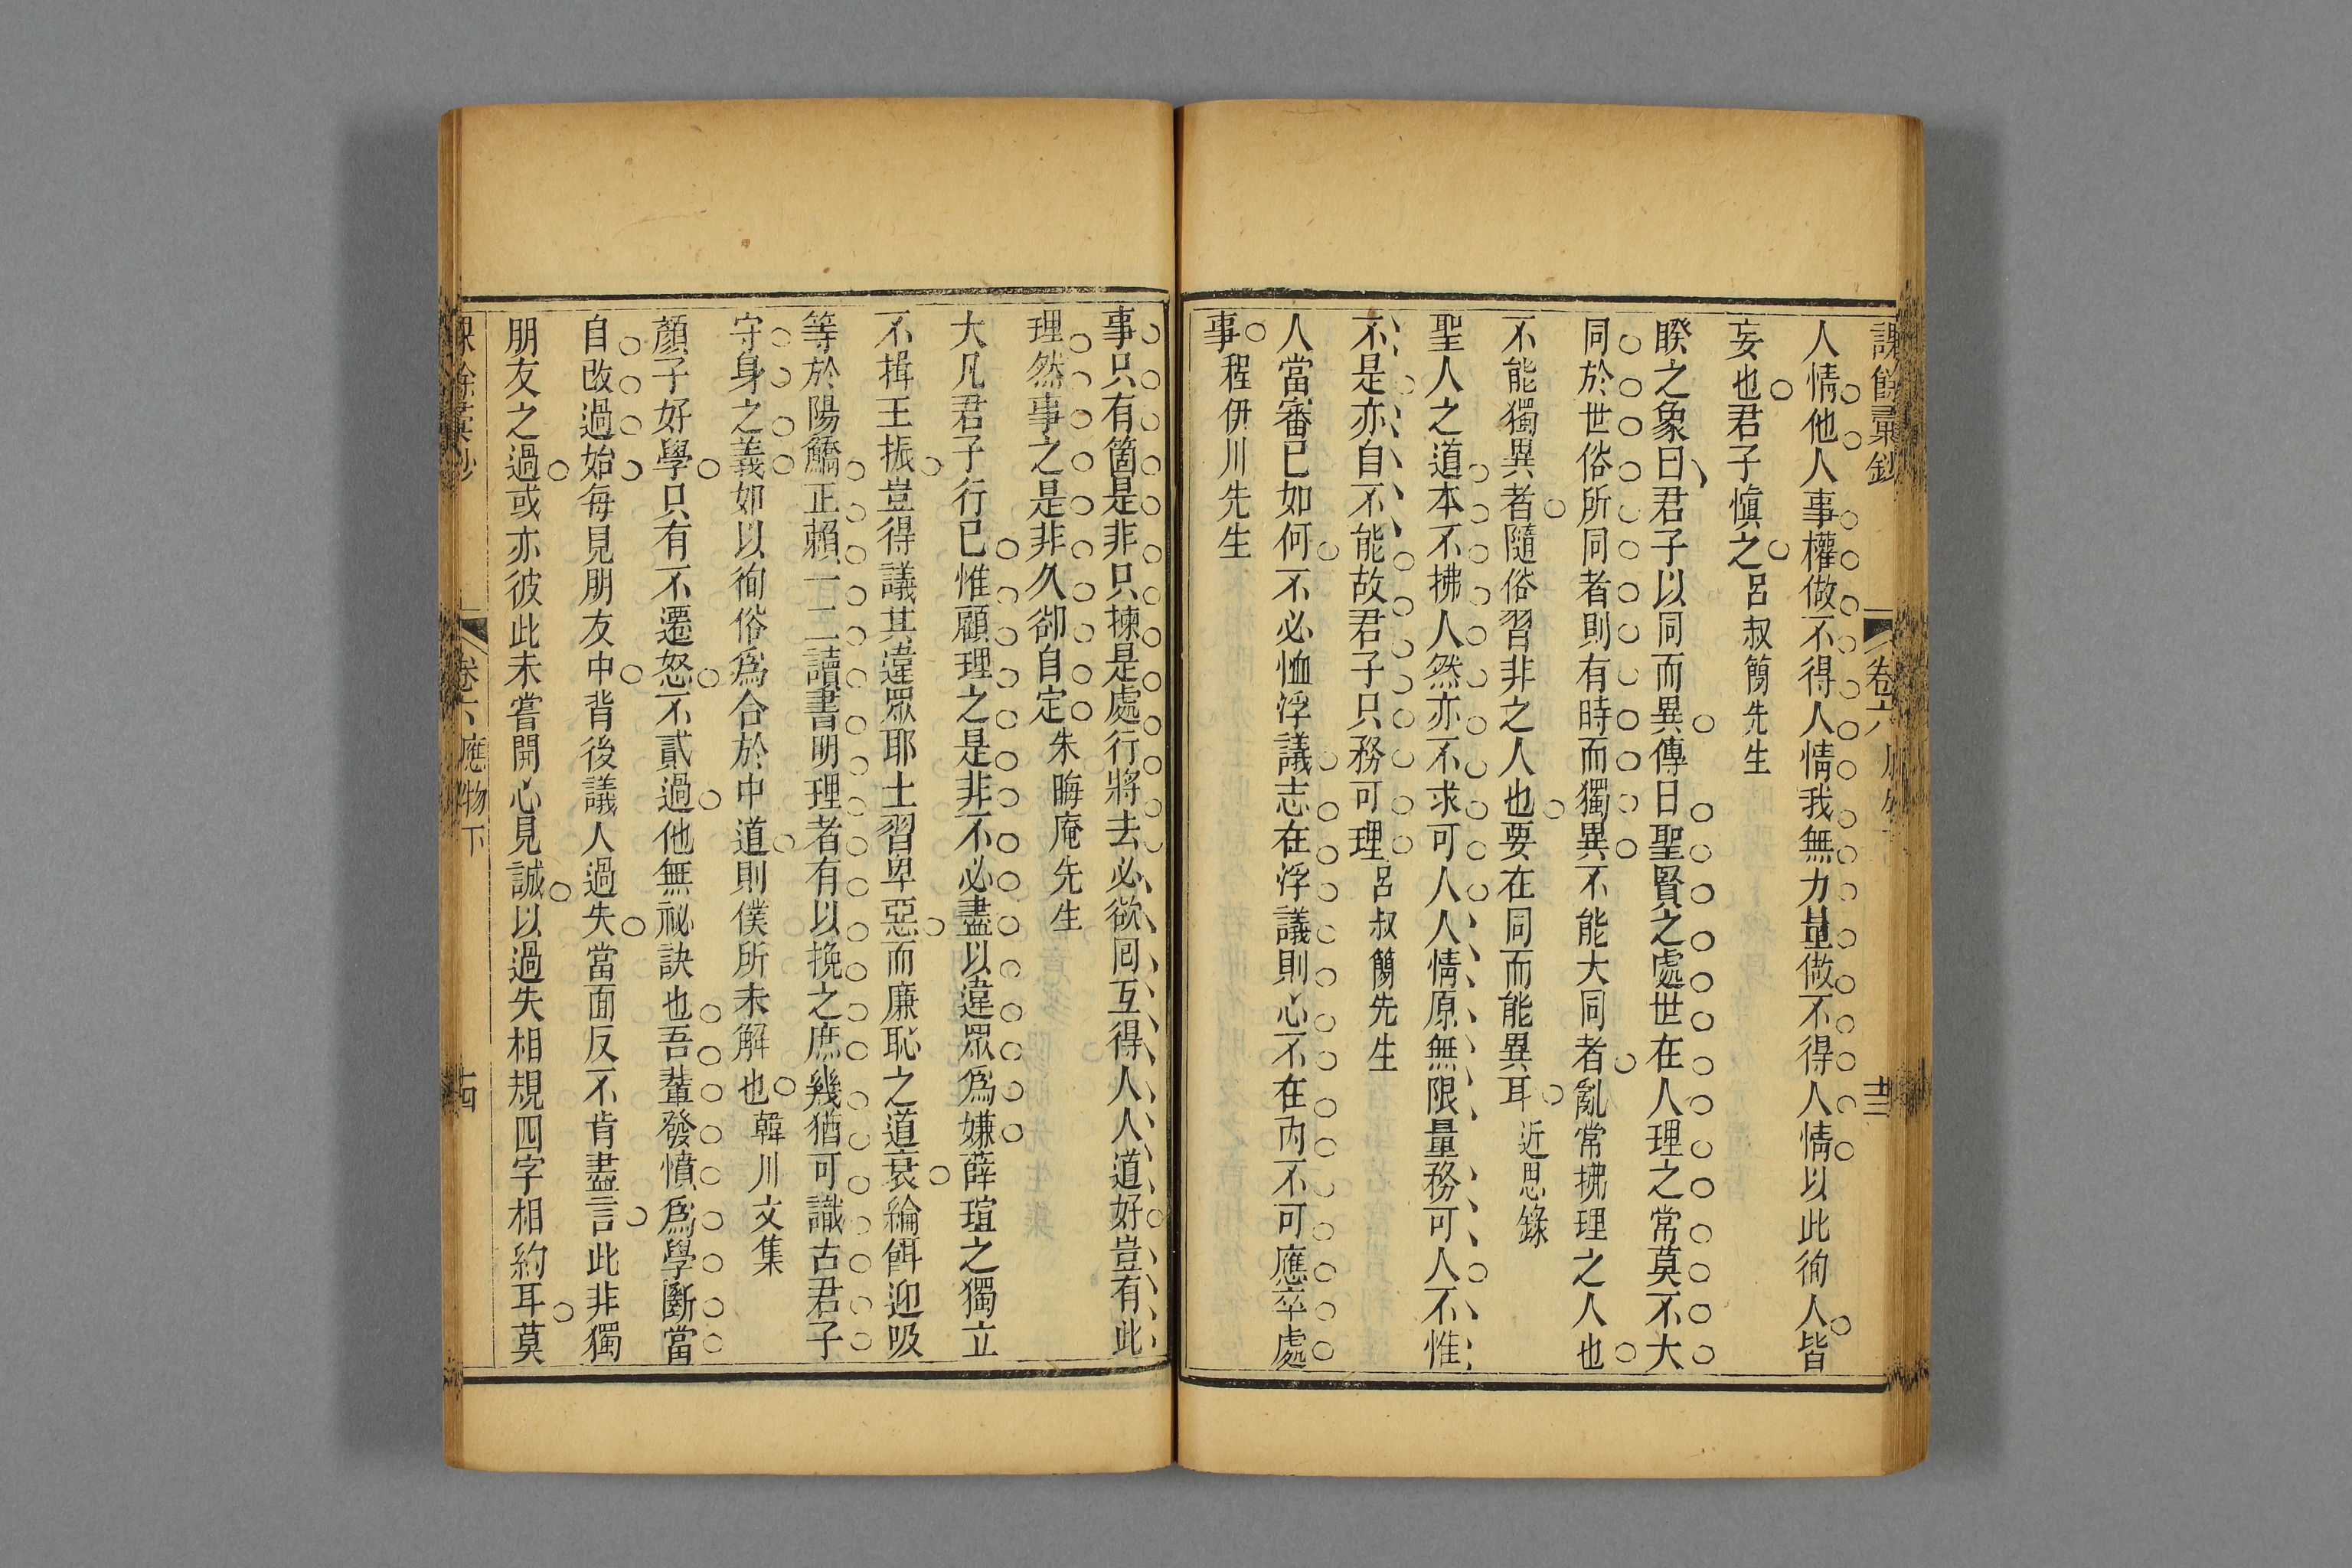 課餘彙鈔 卷六 廿三
人情他人事權做不得人情我無力量做不得人情以此徇人皆
妄也君子愼之呂叔簡先生
睽之象曰君子以同而異傳曰聖賢之處世在人理之常莫不大
同於世俗所同者則有時而獨異不能大同者亂常拂理之人也
不能獨異者隨俗習非之人也要在同而能異耳近思錄
聖人之道本不拂人然亦不求可人人情原無限量務可人不惟
不是亦自不能故君子只務可理呂叔簡先生
人當審己如何不必恤浮議志在浮議則心不在內不可應卒處
事程伊川先生
事只有箇是非只揀是處行將去必欲回互得人人道好豈有此
理然事之是非久卻自定朱晦庵先生
大凡君子行已惟顧理之是非不必盡以違眾爲嫌薛瑄之獨立
不揖王振豈得議其違眾耶士習卑惡而廉恥之道衰綸餌迎吸
等於陽鱎正賴一二讀書明理者有以挽之庶幾猶可識古君子
守身之義如以徇俗爲合於中道則僕所未解也韓川文集
顏子好學只有不遷怒不貳過他無祕訣也吾輩發憤爲學斷當
自改過始每見朋友中背後議人過失當面反不肯盡言此非獨
朋友之過或亦彼此未嘗開心見誠以過失相規四字相約耳莫
卷六 應物下